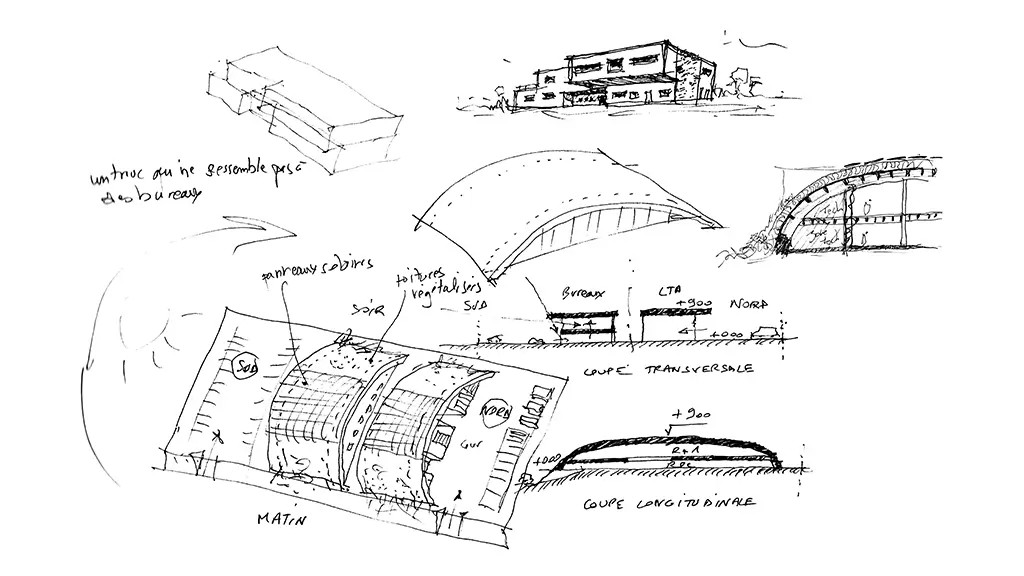 un truc qui ne ressemble pas à
des bureaux
panneaux solaires
toitures
végétalisées
SOIR
SUD
Bureaux
LTA
+900
NORD
+000
COUPE TRANSVERSALE
SUD
NORD
Cour
MATIN
+900
R+1
RDC
+000
COUPE LONGITUDINALE
Tech